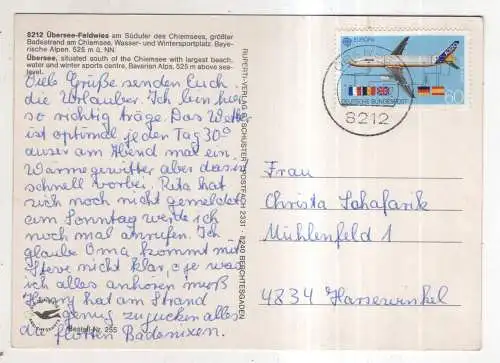 8212 Übersee-Feldwies am Südufer des Chiemsees, größter
Badestrand am Chiemsee, Wasser- und Wintersportplatz. Baye-
rische Alpen. 525 m ü. NN.
Übersee, situated south of the Chiemsee with largest beach,
water and winter sports centre, Bavarian Alps, 525 m above sea-
level.
Viele Grüße senden Euch
die Urlauber. Ich bin hier
so richtig träge. Das Wetter
ist optimal jeden Tag 30°
auser am Abend mal ein
Wärmegewitter aber das ist
schnell vorbei. Rita hat
sich noch nicht gemeldet
am Sonntag werde ich
noch mal anrufen. Ich
glaube Oma kommt mit
Steve nicht klar, oje was
ich alles anhören muß
Hanny hat am Strand
genug zu gucken alles
die flotten Badenixen.
Bestell-Nr. 255
RUPERTI-VERLAG G. SCHUSTER · POSTFACH 2331 · 8240 BERCHTESGADEN
EUROPA
DEUTSCHE BUNDESPOST
60
8212
Frau
Christa Lahafarik
Mühlenfeld 1
4834 Harsewinkel